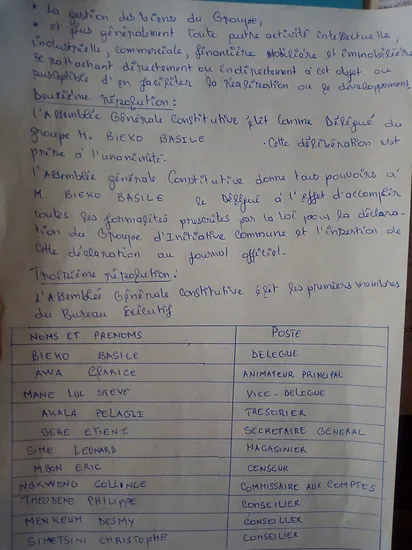 • La gestion des biens du Groupe,
• et plus généralement toute autre activité intellectuelle,
industrielle, commerciale, financière mobilière et immobilière
se rattachant directement ou indirectement à cet objet ou
susceptible d'en faciliter la réalisation ou le développement
Deuxième résolution :
L'Assemblée Générale Constitutive élit comme Délégué du
groupe M. BIEKO BASILE . Cette délibération est
prise à l'unanimité.
L'Assemblée générale Constitutive donne tous pouvoirs à
M BIEKO BASILE le Délégué à l'effet d'accomplir
toutes les formalités prescrites par la loi pour la déclara-
tion du Groupe d'Initiative Commune et l'insertion de
cette déclaration au journal officiel.
Troisième résolution :
L'Assemblée Générale Constitutive élit les premiers membres
du Bureau Exécutif
NOMS ET PRENOMS POSTE
BIEKO BASILE DELEGUE
AWA CLARICE ANIMATEUR PRINCIPAL
MANE LUC STEVE VICE - DELEGUE
AKALA PELAGIE TRESORIER
SERE ETIENE SECRETAIRE GENERAL
SIME LEONARD MAGASINIER
MBON ERIC CENSEUR
NGKWENG COLLINCE COMMISSAIRE AUX COMPTES
THEODENE PHILIPPE CONSEILIER
MENKEUM DESMY CONSEILLER
SIMETSINI CHRISTOPHE CONSEILIER